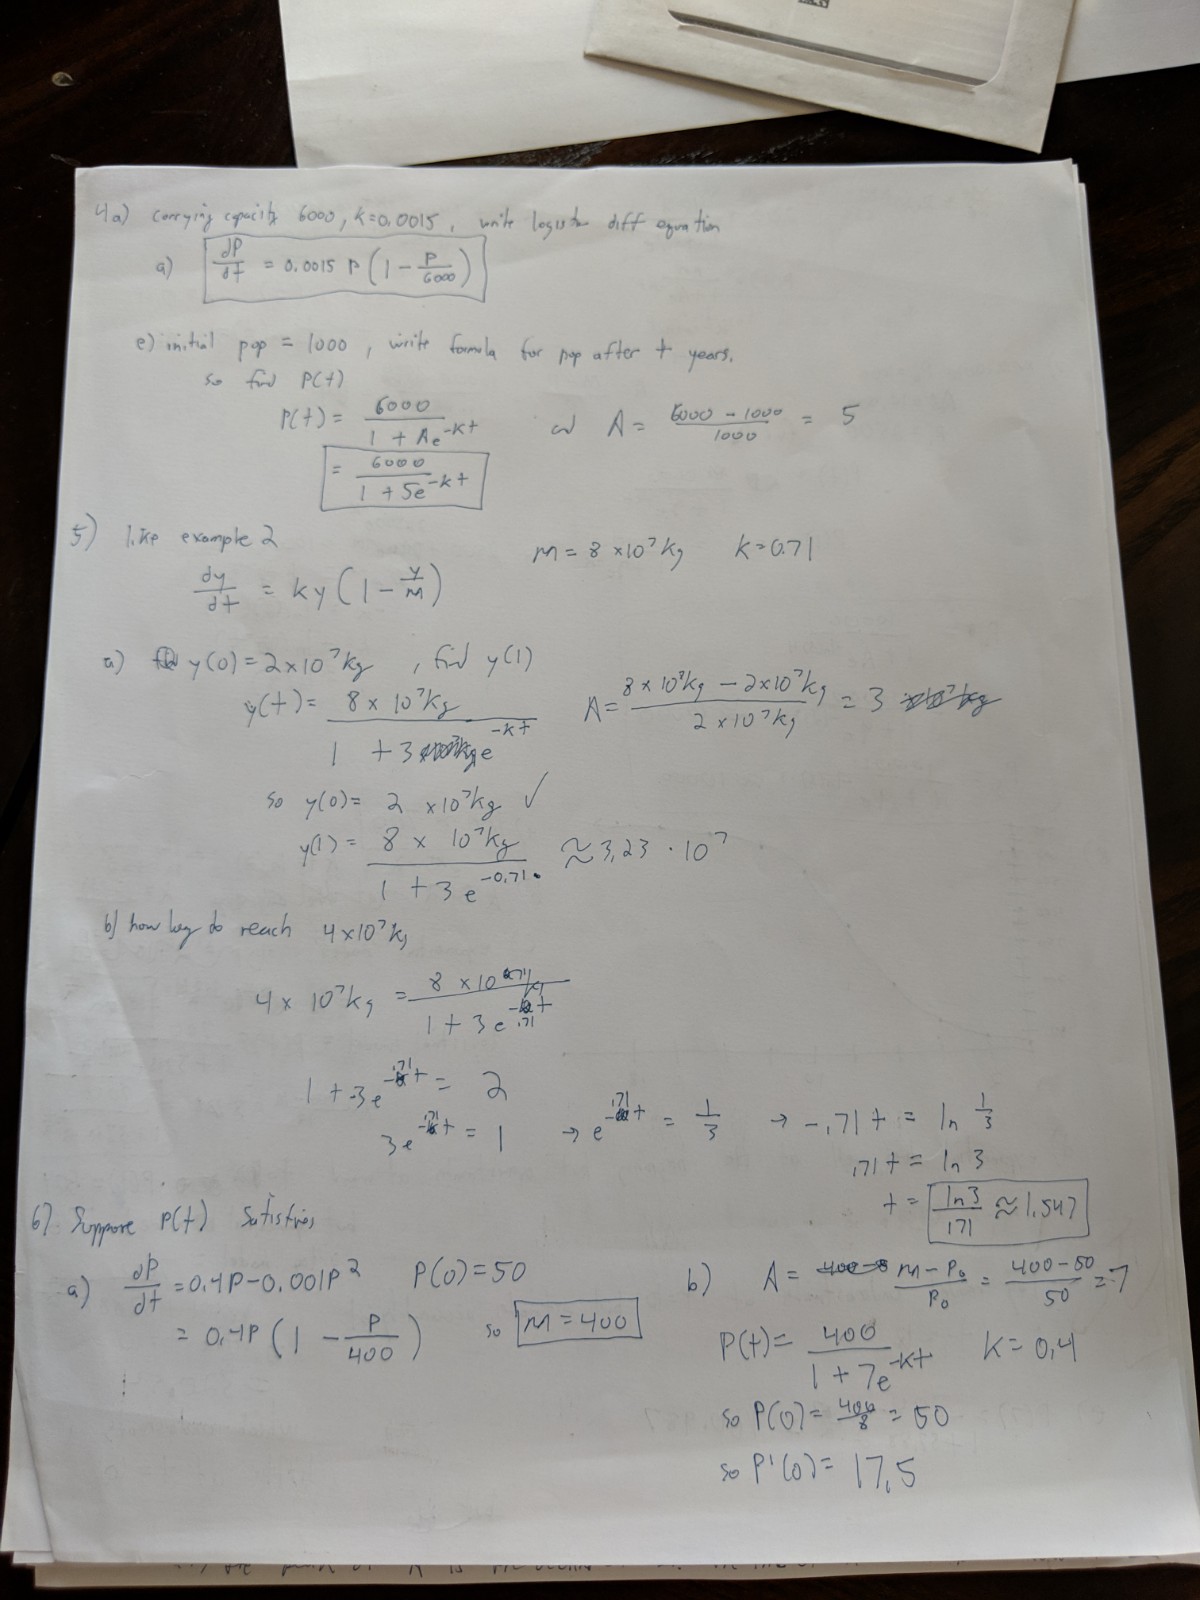 4a) carrying capacity 6000, k=0.0015, write logistic diff equation
a) dP/dt = 0.0015 P (1 - P/6000)
e) initial pop = 1000, write formula for pop after t years.
so find P(t)
P(t) = 6000/(1 + Ae^-kt) and A = (6000 - 1000)/1000 = 5
= 6000/(1 + 5e^-kt)
5) like example 2 m = 8 x10^7 kg k=0.71
dy/dt = ky(1 - y/m)
a) y(0) = 2x10^7 kg, find y(1)
y(t) = 8 x 10^7 kg/(1 + 3e^-kt) A = (8 x 10^7 kg - 2x10^7 kg)/(2 x 10^7 kg) = 3
so y(0) = 2 x10^7 kg ✓
y(1) = 8 x 10^7 kg/(1 + 3e^-0.71) ≈ 3.23 · 10^7
b) how long to reach 4x10^7 kg
4 x 10^7 kg = 8 x 10^7 kg/(1 + 3e^-.71t)
1 + 3e^-.71t = 2
3e^-.71t = 1 → e^-.71t = 1/3 → -.71t = ln 1/3
.71t = ln 3
t = ln3/.71 ≈ 1.547
6) Suppose P(t) satisfies
a) dP/dt = 0.4P - 0.001P² P(0) = 50
= 0.4P (1 - P/400) so m = 400
⋮
b) A = (m - P₀)/P₀ = (400 - 50)/50 = 7
P(t) = 400/(1 + 7e^-kt) k = 0.4
so P(0) = 400/8 = 50
so P'(0) = 17.5